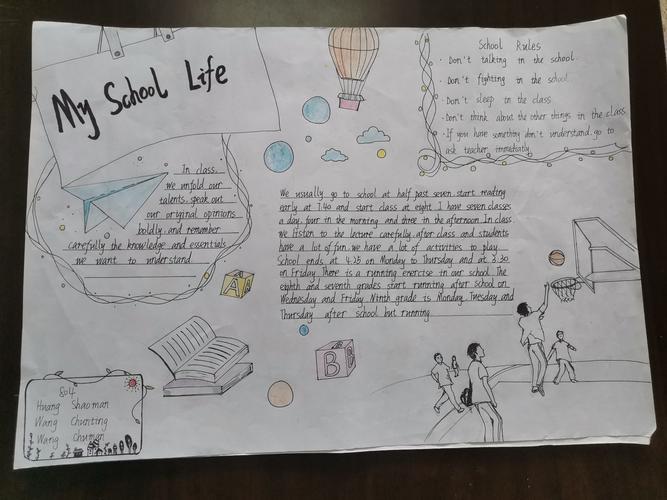 My School Life
School Rules
· Don't talking in the school.
· Don't fighting in the school
· Don't sleep in the class
· Don't think about the other things in the class
· If you have something don't understand. go to
ask teacher immediatily.
In class,
we unfold our
talents, speak out
our original opinions
boldly, and remember
carefully the knowledge and essentials
we want to understand
We usually go to school at half past seven. start reading
early at 7:40 and start class at eight. I have seven classes
a day, four in the morning and three in the afternoon. In class,
we listen to the lecture carefully, after class and students
have a lot of fun. we have a lot of activities to play.
School ends at 4:25 on Monday to Thursday, and at 3:30
on Friday. There is a running exercise in our school. The
eighth and seventh grades start running after school on
Wednesday and Friday. Ninth grade is Monday, Tuesday and
Thursday after school but running
A
B
804
Huang Shaoman
Wang Chunting
Wang